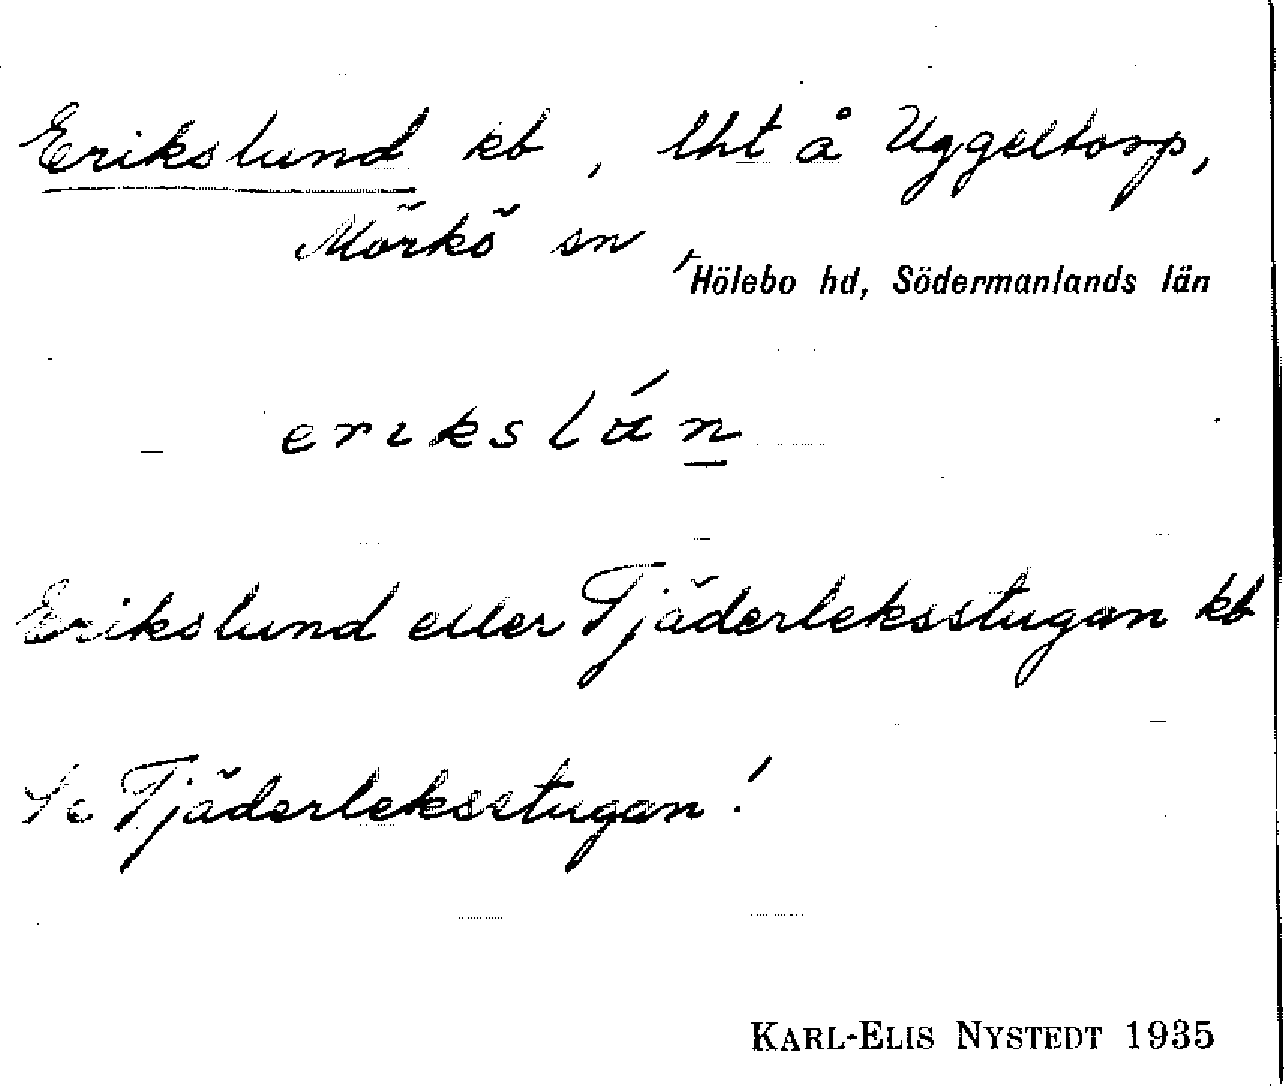 Erikslund kb, lht å Uggeltorp,
Mörkö sn, Hölebo hd, Södermanlands län
erikslún
Erikslund eller Tjäderleksstugan kb
Se Tjäderleksstugan!
KARL-ELIS NYSTEDT 1935